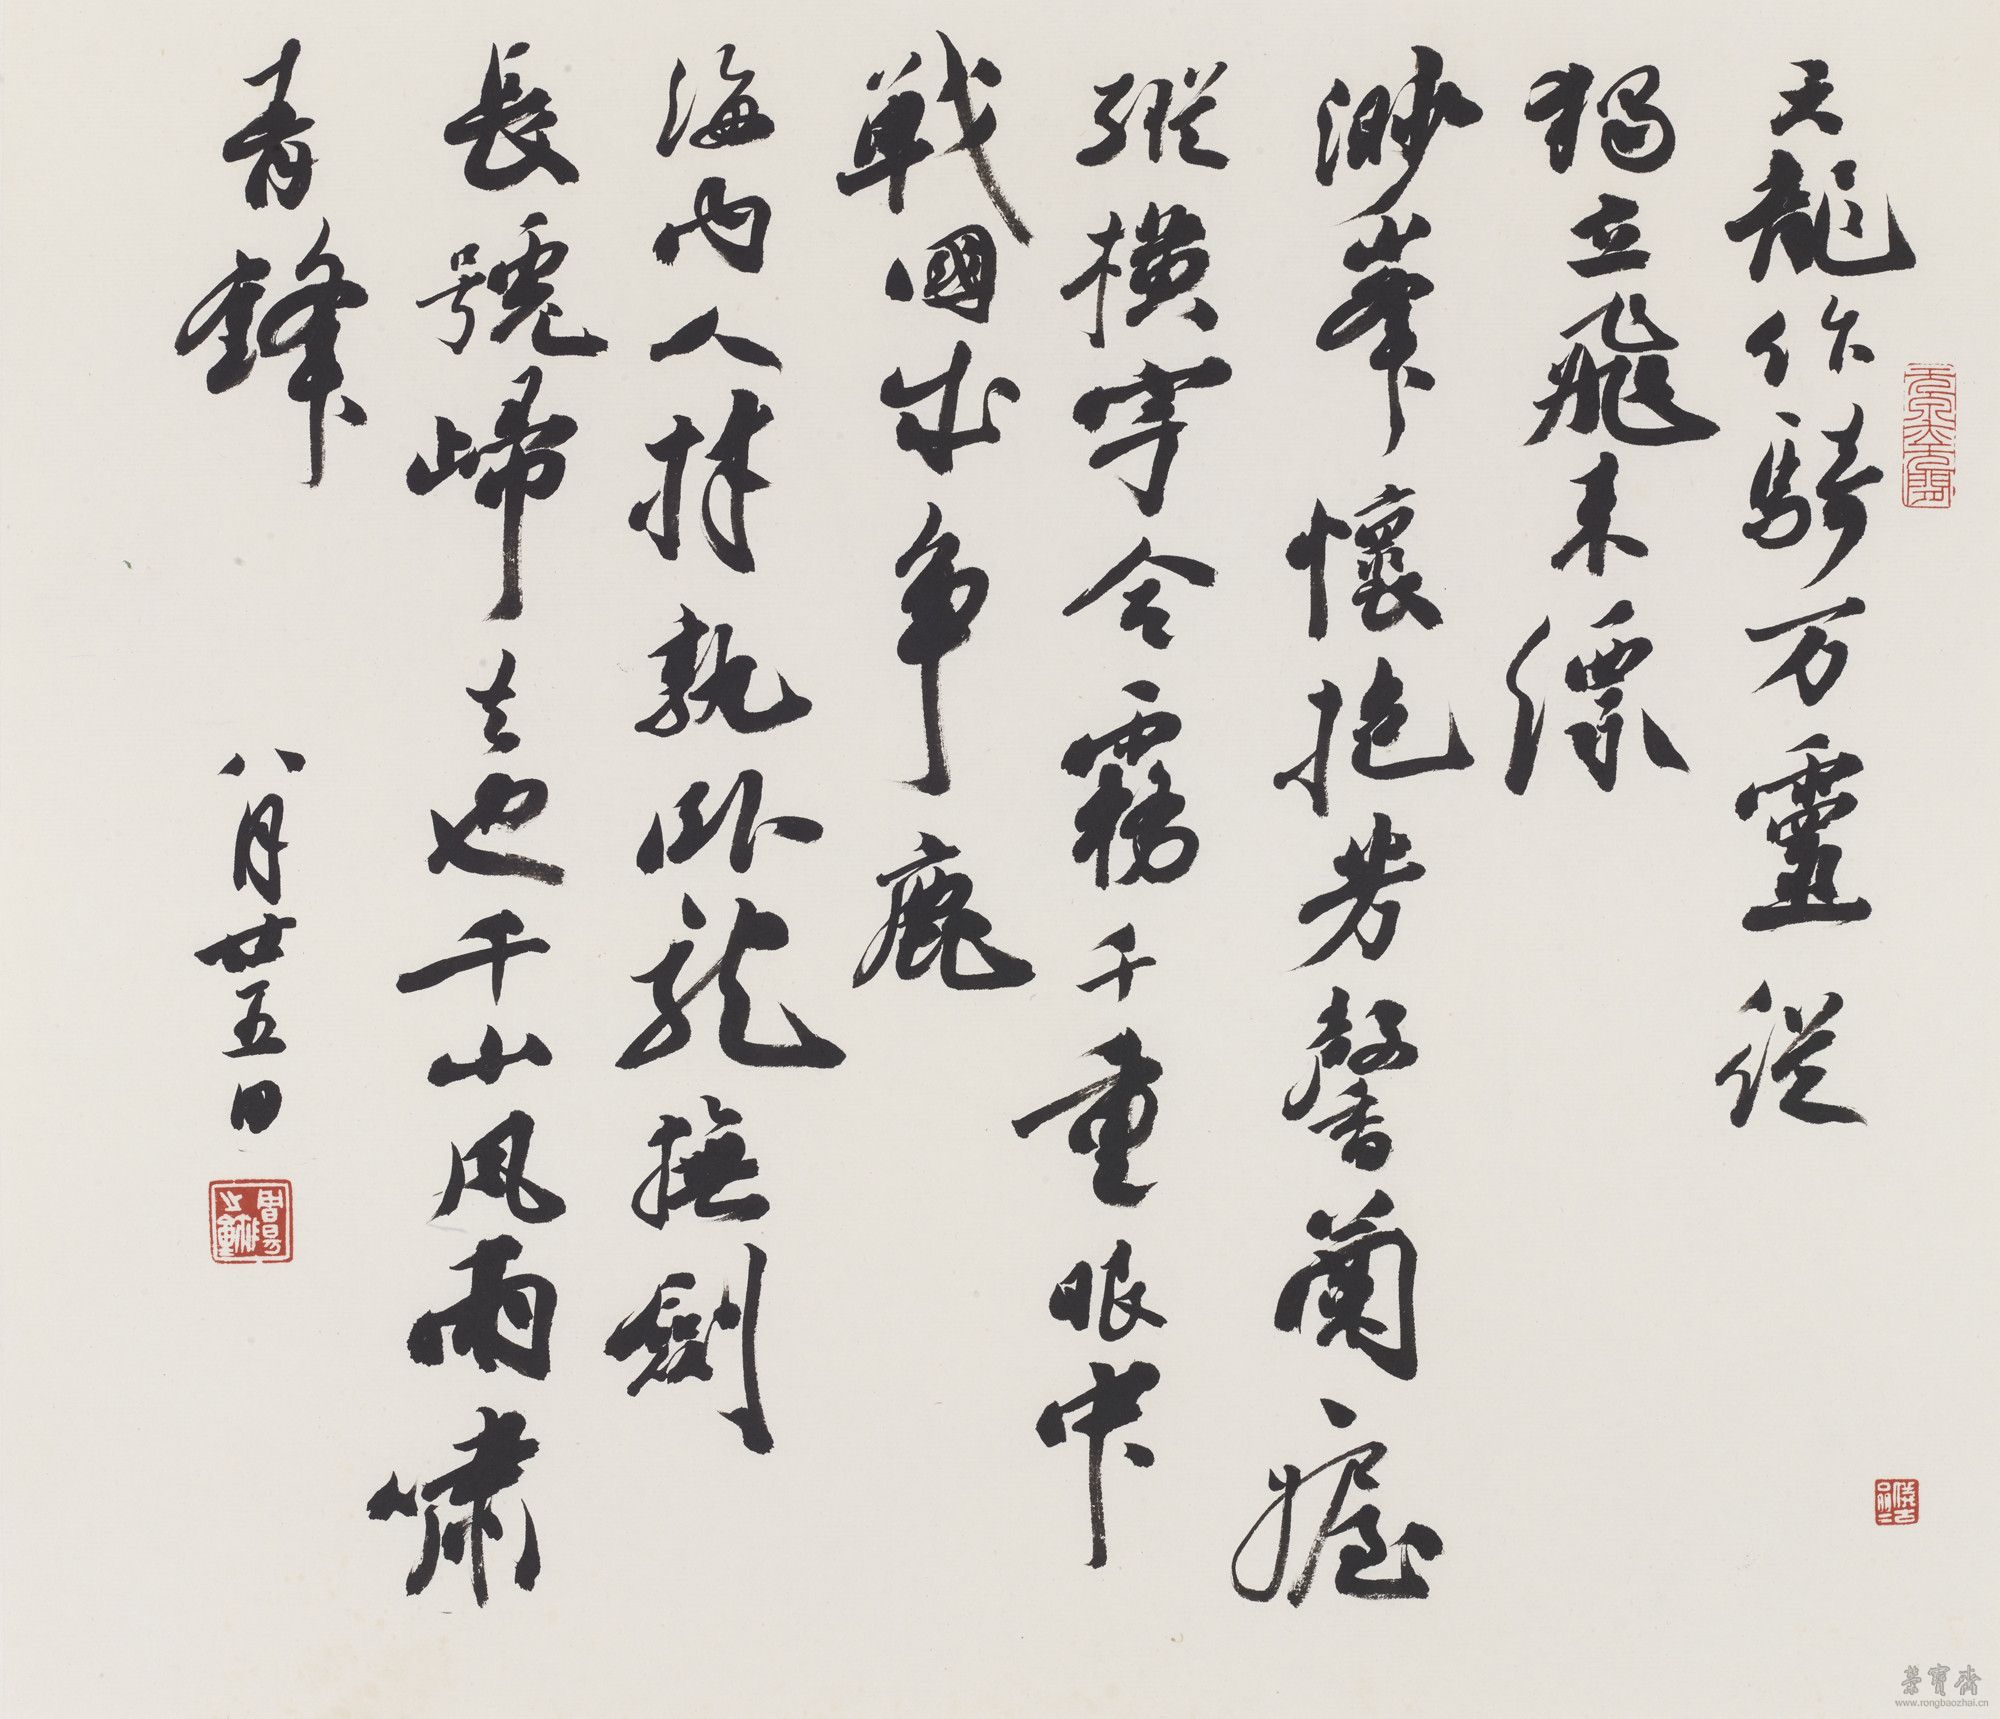 天龍作騎万靈從
獨立飛来縹
渺峯懷抱芳馨蘭一握
縱橫宇合霧千重眼中
戰國成争鹿
海內人材孰卧龍撫劍
長號歸去也千山風雨嘯
青鋒
八月廿五日
榮寶齋
www.rongbaozhai.cn